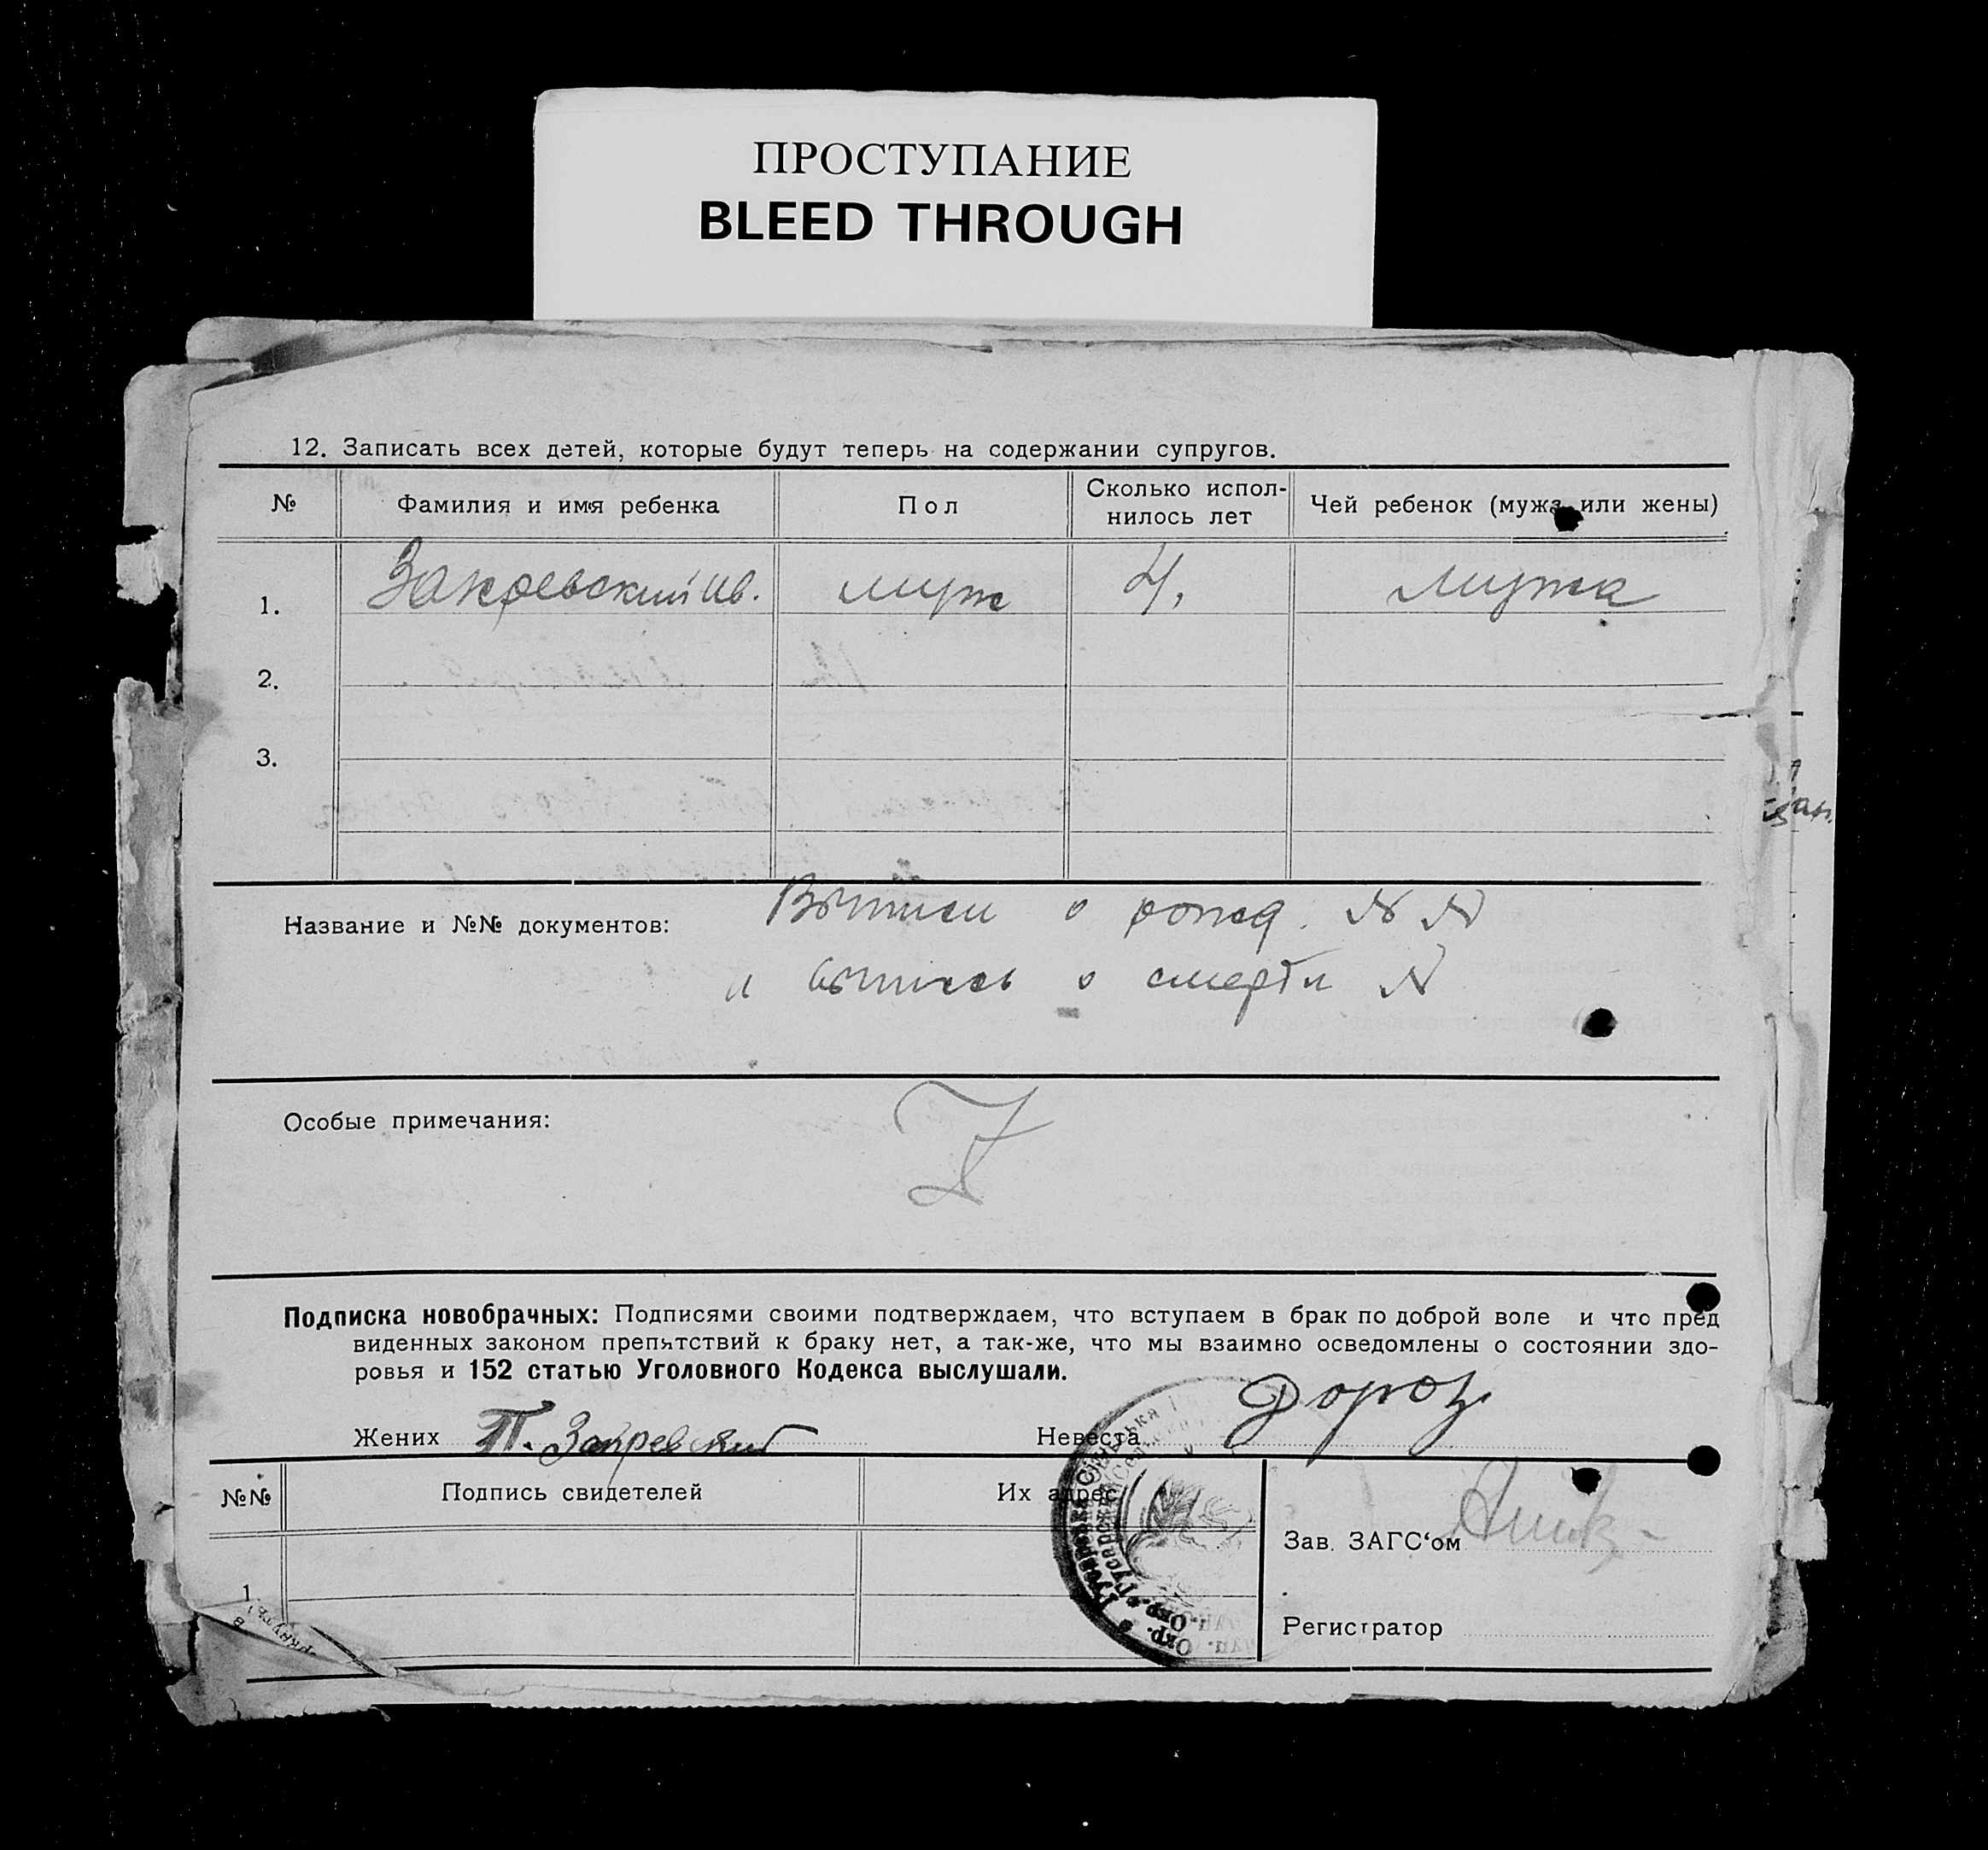 ПРОСТУПАНИЕ
BLEED THROUGH
12. Записать всех детей, которые будут теперь на содержании супругов.
№ Фамилия и имя ребенка Пол Сколько испол-нилось лет Чей ребенок (мужа или жены)
1. Закревский Ив. муж 4, мужа
2.
3.
Название и №№ документов: Выписи о рожд. N N
и выпись о смерти N
Особые примечания:
Подписка новобрачных: Подписями своими подтверждаем, что вступаем в брак по доброй воле и что пред
виденных законом препятствий к браку нет, а так-же, что мы взаимно осведомлены о состоянии здо-
ровья и 152 статью Уголовного Кодекса выслушали.
Жених П. Закревский Невеста
№№ Подпись свидетелей Их адрес
Зав. ЗАГС'ом
1
Регистратор